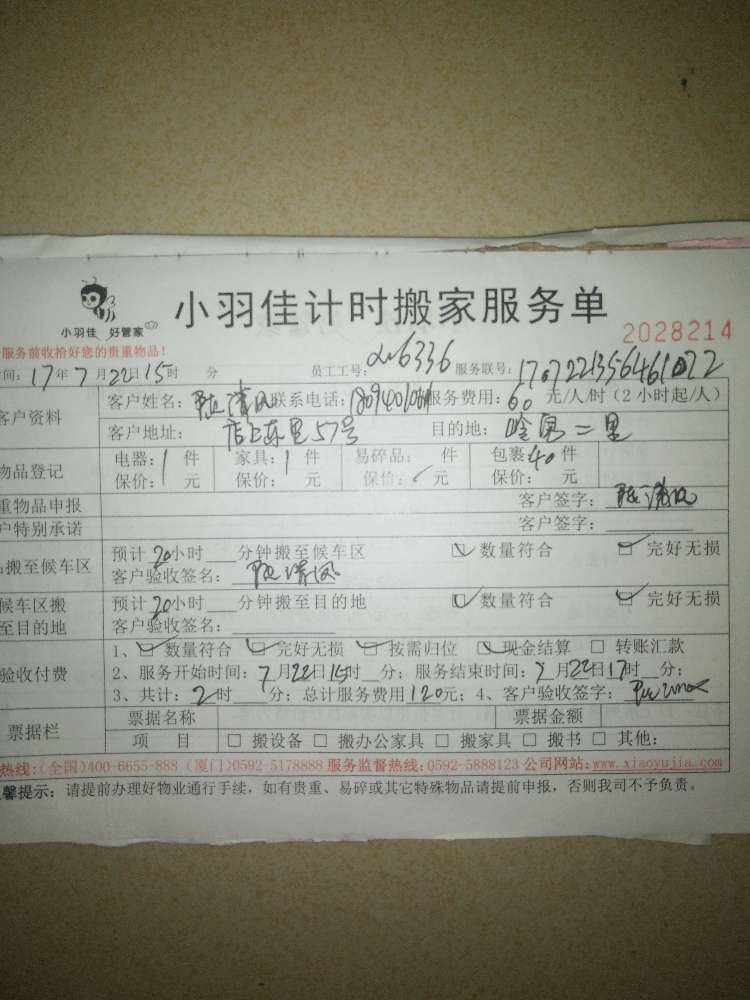 小羽佳 好管家
小羽佳计时搬家服务单
2028214
服务前收拾好您的贵重物品!
间: 17年7月22日15时 分 员工工号: 6336 服务联号: 1707221356461072
客户资料 客户姓名: 清风 联系电话: 服务费用: 60 元/人/时(2小时起/人)
客户地址: 店上东里57号 目的地: 二里
物品登记 电器: 1 件 家具: 1 件 易碎品: 件 包裹: 40 件
保价: 元 保价: 元 保价: 元 保价: 元
重物品申报 客户签字: 清风
户特别承诺 客户签字:
搬至候车区 预计20小时 分钟搬至候车区 数量符合 完好无损
客户验收签名: 清风
候车区搬至目的地 预计20小时 分钟搬至目的地 数量符合 完好无损
客户验收签名:
验收付费 1、数量符合 完好无损 按需归位 现金结算 转账汇款
2、服务开始时间: 7月22日15时 分; 服务结束时间: 7月22日17时 分;
3、共计: 2时 分; 总计服务费用120元; 4、客户验收签字:
票据栏 票据名称 票据金额
项 目 搬设备 搬办公家具 搬家具 搬书 其他:
热线:(全国)400-6655-888 (厦门)0592-5178888 服务监督热线: 0592-5888123 公司网站: www.xiaoyujia.com
馨提示: 请提前办理好物业通行手续, 如有贵重、易碎或其它特殊物品请提前申报, 否则我司不予负责。